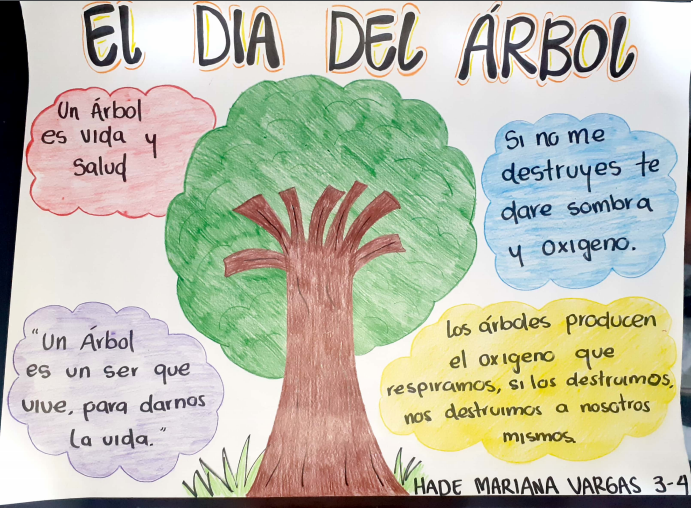 El DIA DEL ÁRBOL
Un Árbol
es vida y
Salud
Si no me
destruyes te
dare sombra
y oxigeno.
"Un Árbol
es un ser que
vive, para darnos
la vida."
los árboles producen
el oxigeno que
respiramos, si los destruimos,
nos destruimos a nosotros
mismos.
HADE MARIANA VARGAS 3-4